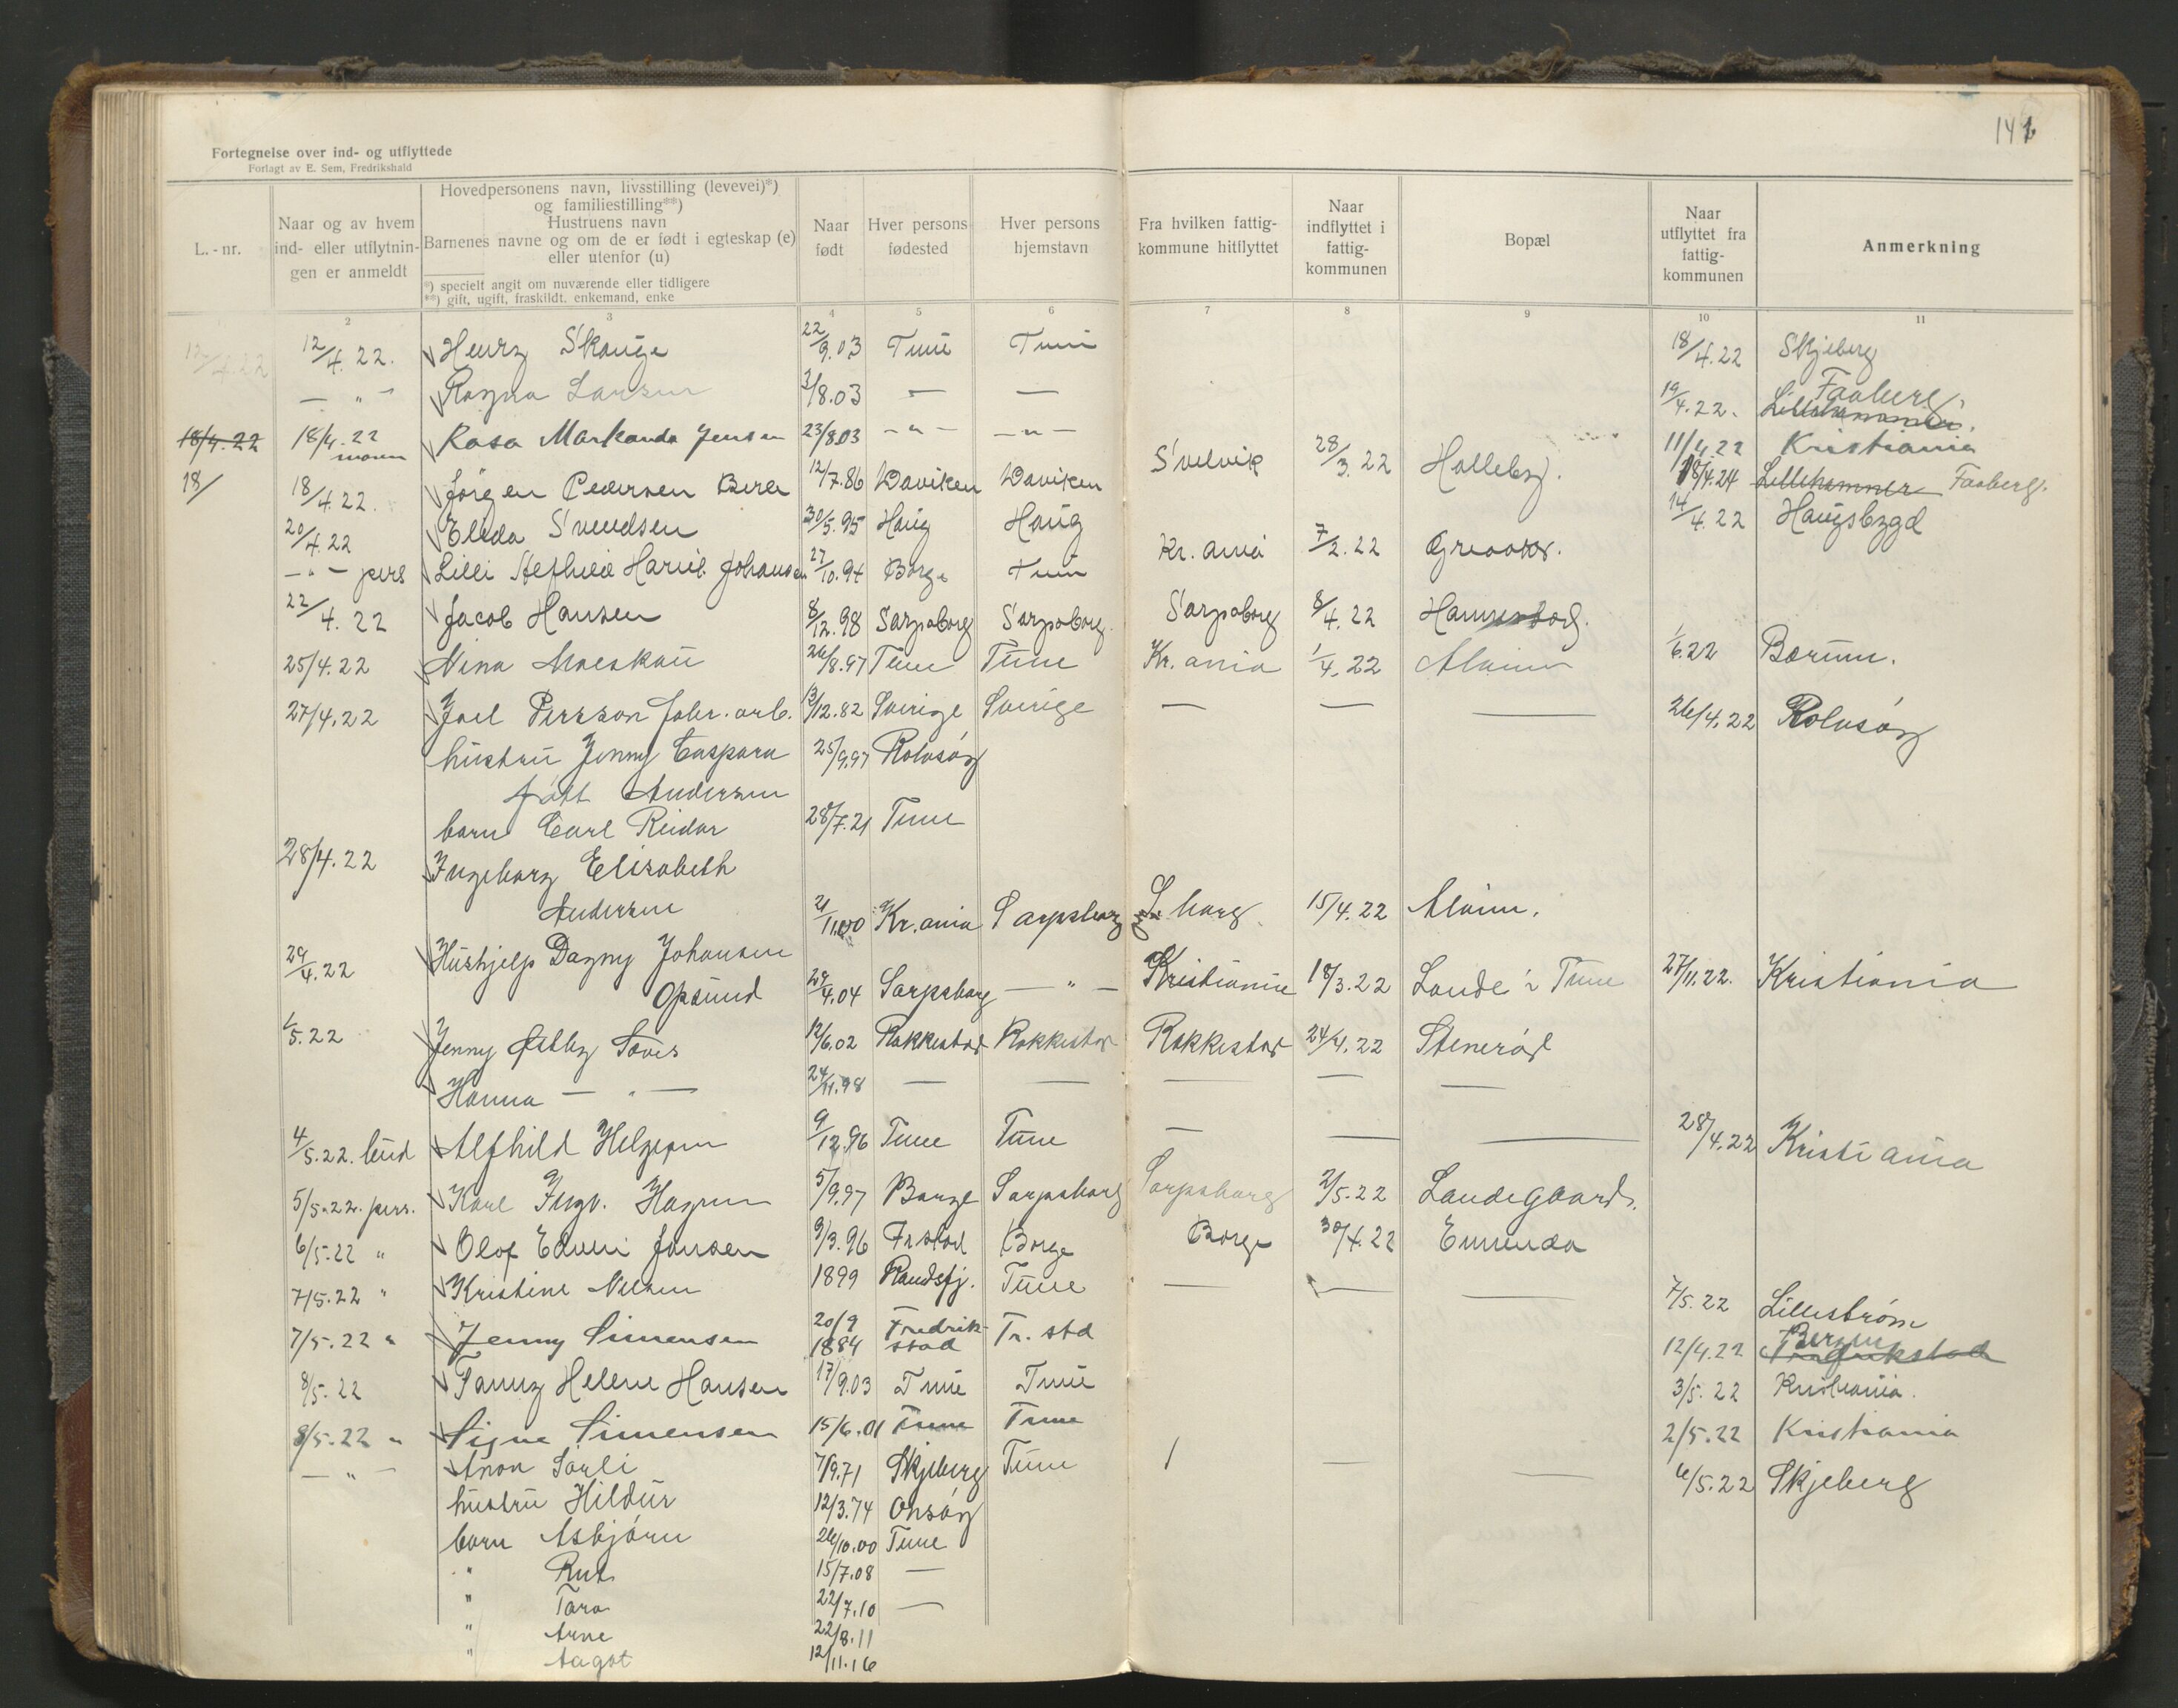 141
Fortegnelse over ind- og utflyttede
Forlagt av E. Sem, Fredrikshald
L.-nr.
Naar og av hvem ind- eller utflytningen er anmeldt
Hovedpersonens navn, livsstilling (levevei)*) og familiestilling**)
Hustruens navn
Barnenes navne og om de er født i egteskap (e) eller utenfor (u)
*) specielt angit om nuværende eller tidligere
**) gift, ugift, fraskildt, enkemand, enke
Naar født
Hver persons fødested
Hver persons hjemstavn
Fra hvilken fattigkommune hitflyttet
Naar indflyttet i fattigkommunen
Bopæl
Naar utflyttet fra fattigkommunen
Anmerkning
2 3 4 5 6 7 8 9 10 11
12/4.22 12/4.22. Henry Skauge 22/9.03 Tune Tune 18/4.22 Skjeberg
— " — Ragna Larsen 3/8.03 — — 19/4.22. Lillehammer. Faaberg.
18/4.22 18/4.22 Rosa Jensen 23/8.03 —"— —"— 11/4.22 Kristiania
18/ 18/4.22. Jörgen Pedersen 12/7.86 Daviken Daviken Svelvik 28/3.22 Halleby. 18/4.24 Lillehammer Faaberg.
20/4.22 Elida Svendsen 30/5.95 Haug Haug 14/4.22 Haugsbygd
— " — pers Lilli Johansen 27/10.94 Borge Tune Kr.ania 7/2.22 Greaaker.
22/4.22 Jacob Hansen 8/12.98 Sarpsborg Sarpsborg. Sarpsborg 8/4.22
25/4.22 Nina 26/8.97 Tune Tune Kr.ania 1/4.22 Alvim 1/6.22 Bærum.
27/4.22 Joel Persson fabr.arb. 13/12.82 Sverige Sverige — — — 26/4.22 Rolvsöy
hustru Jenny Caspara 25/9.97 Rolvsöy
född Andersen
barn Carl Reidar 28/7.21 Tune
28/4.22 Ingeborg Elisabeth
Andersen 21/11.00 Kr.ania Sarpsborg S.borg 15/4.22 Alvim.
29/4.22 Hushjelp Dagny Johansen
Opsund 29/4.04 Sarpsborg — " — Kristiania 18/3.22 Lande i Tune 27/11.22. Kristiania
1/5.22 Jenny Østby 12/6.02 Rakkestad Rakkestad Rakkestad 24/4.22 Stenerød
Hanna — " — 24/11.98 — — — — —
4/5.22. bud Alfhild Helgesen 9/12.96 Tune Tune — — — 28/4.22 Kristiania
5/5.22. pers. Karl Ingv. Hagen 5/9.97 Borge Sarpsborg Sarpsborg 2/5.22 Landegaard.
6/5.22 " Olaf Edvin Jensen 9/3.96 Fr.stad Borge Borge 30/4.22 Enenda
7/5.22 " Kristine Nilsen 1899 Randsfj. Tune — — — 7/5.22 Lillestrøm
7/5.22 " Jenny Simensen 20/9 1884 Fredrikstad Fr. std 12/4.22 Fredrikstad Bergen
8/5.22 Fanny Helene Hansen 17/9.03 Tune Tune 3/5.22 Kristiania.
8/5.22 " Signe Simensen 15/6.01 Tune Tune 2/5.22 Kristiania
— " — Anon Sørli 7/9.71 Skjeberg Tune / — — 6/5.22 Skjeberg
hustru Hildur 12/3.74 Onsöy
barn Asbjörn 26/10.00 Tune
" Rut 15/7.08 —
" Tora 22/7.10 —
" Arne 22/8.11
" Aagot 12/11.16